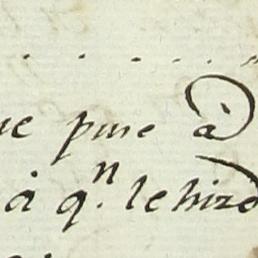 ue puse à
à qn. le hizo